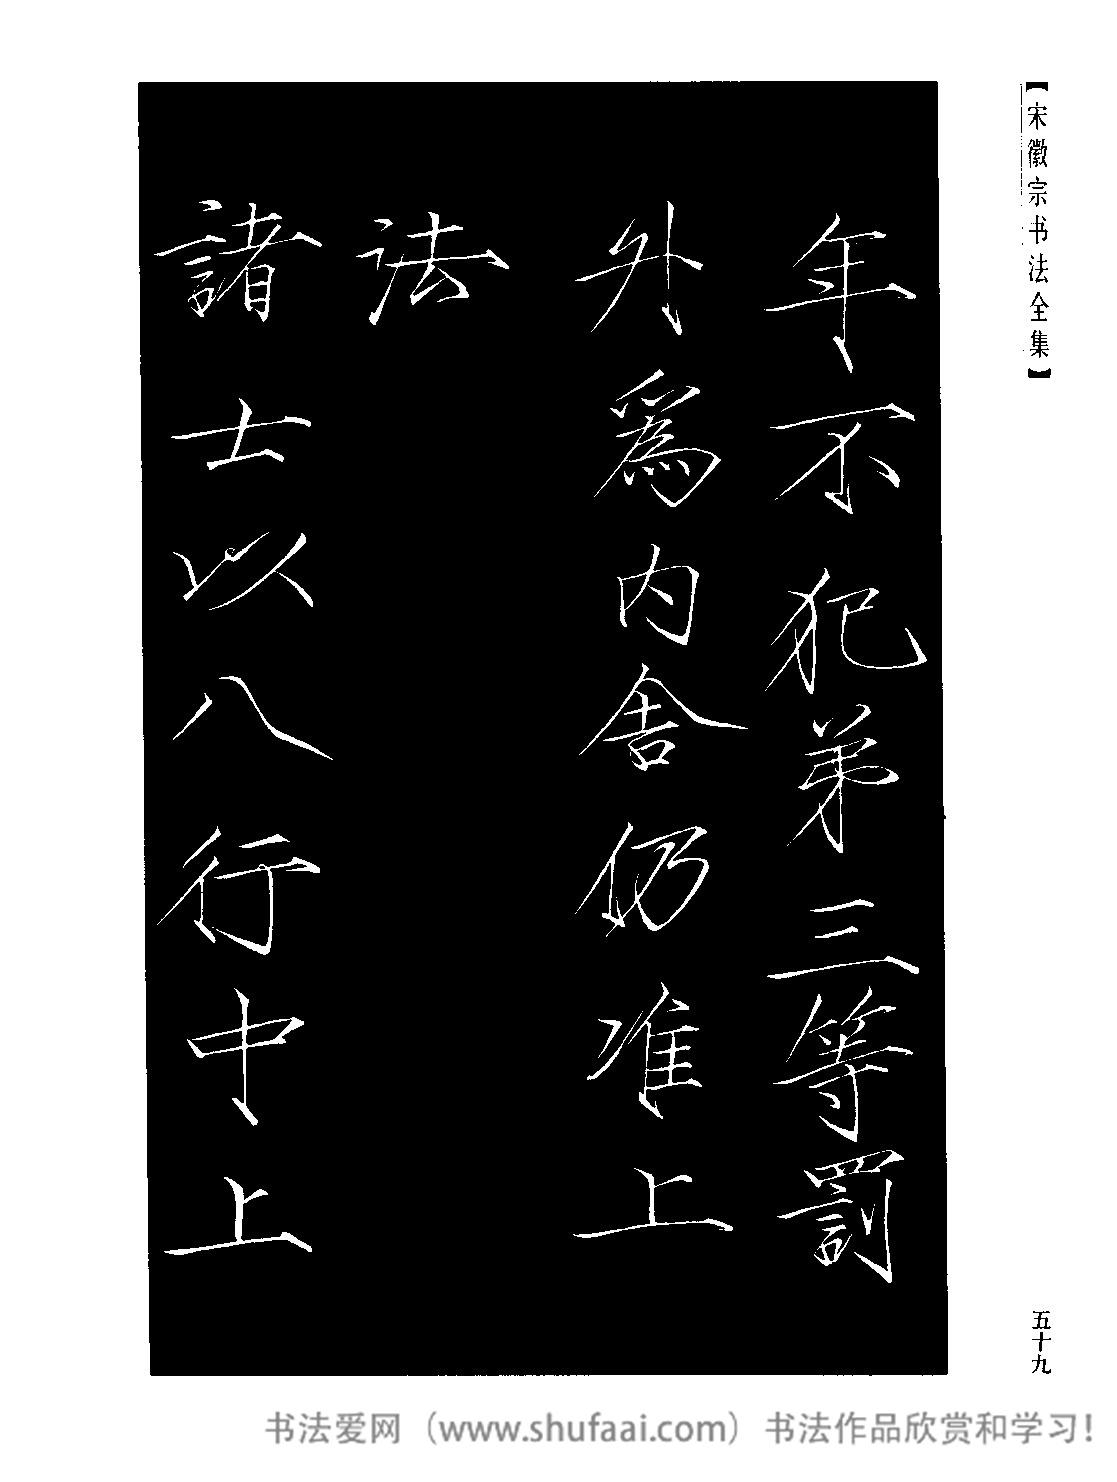 【宋徽宗书法全集】
年不犯弟三等罰
外為内舍仍准上
法
諸士以八行中上
五十九
书法爱网（www.shufaai.com）书法作品欣赏和学习！